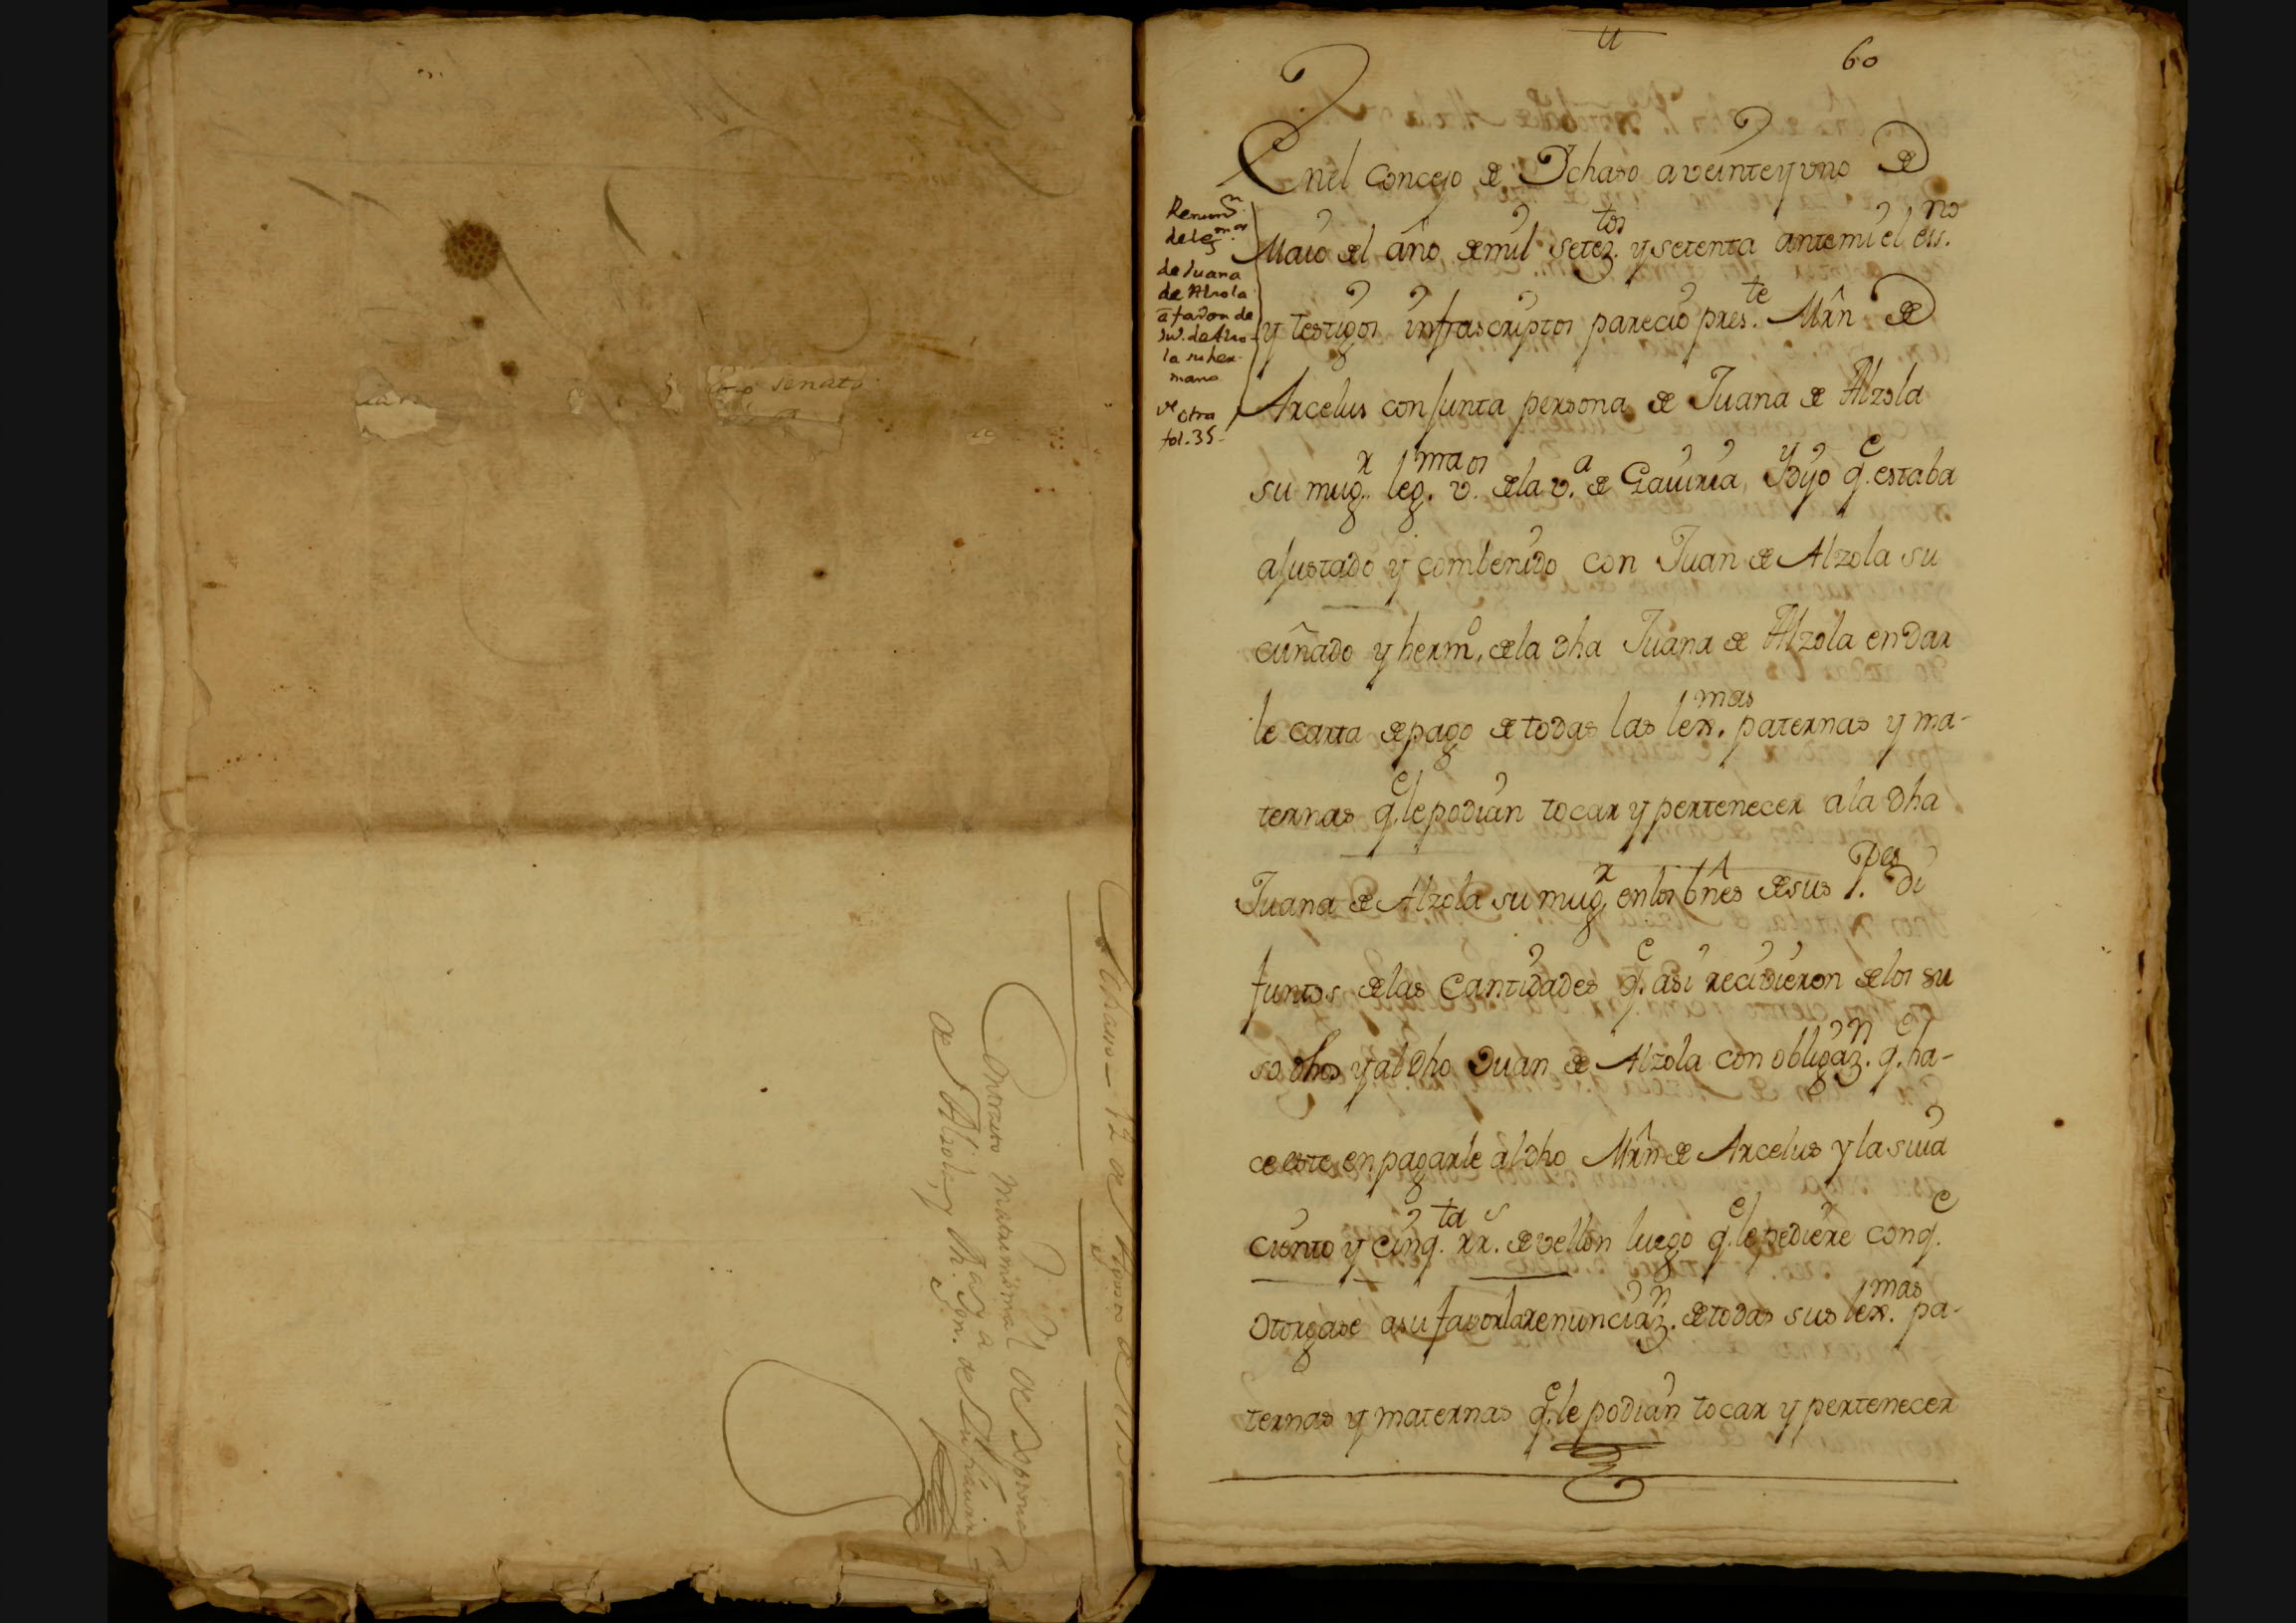 senato
Ichasso - 12 de
Contrato Matrimonial de
de Alzola, y M.ª Ygn.ª de
60
En el Concejo de Ychaso a veinte y uno de
Maio del año de mil setez.tos y setenta ante mi el es.no
y testigos infrascriptos parecio pres.te Mrñ de
Arcelus conjunta persona de Juana de Alzola
su mug.r leg.ma v.os de la v.a de Gaviria, y Dijo q.e estaba
ajustado y combenido con Juan de Alzola su
cuñado y herm.o de la dha Juana de Alzola en dar
le carta de pago de todas las lex.mas paternas y ma-
ternas q.e le podian tocar y pertenecer a la dha
Juana de Alzola su mug.r en los bnes de sus P.es di
funtos de las Cantidades q.e asi recivieron de los su
so dhos y al dho Juan de Alzola con obligaz.n q.e ha-
ce este en pagarle al dho Mrñ de Arcelus y la suia
ciento y cinq.ta rr.s de vellon luego q.e le pediere con q.e
otorgase a su favor la renunciaz.n de todas sus lex.mas pa-
ternas y maternas q.e le podian tocar y pertenecer
Renunz.n
de leg.mas
de Juana
de Alzola
a favor de
Ju. de Alzo-
la su her-
mano
v.e otra
fol. 35-